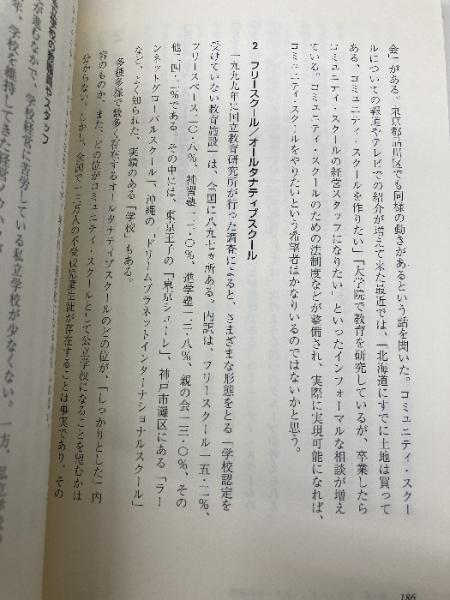 会」がある。東京都品川区でも同様の動きがあるという話を聞いた。コミュニティ・スクー
ルについての報道やテレビでの紹介が増えて来た最近では、「北海道にすでに土地は買って
ある、コミュニティ・スクールを作りたい」「大学院で教育を研究しているが、卒業したら
コミュニティ・スクールの経営スタッフになりたい」といったインフォーマルな相談が増え
ている。コミュニティ・スクールのための法制度などが整備され、実際に実現可能になれば、
コミュニティ・スクールをやりたいという希望者はかなりいるのではないかと思う。
2 フリースクール/オールタナティブスクール
一九九九年に国立教育研究所が行った調査によると、さまざまな形態をとる「学校認定を
受けていない教育施設」は、全国に八九七ヵ所ある。内訳は、フリースクール一五・二%、
フリースペース二〇・八%、補習塾二二・〇%、進学塾一三・八%、親の会一三・〇%、その
他一四・一%である。その中には、東京王子の「東京シューレ」、神戸市灘区にある「ラー
ンネットグローバルスクール」、沖縄の「ドリームプラネットインターナショナルスクール」
など、よく知られた、実績のある「学校」もある。
多種多様で数多く存在するオールタナティブスクールのどの位が、「しっかりとした」内
容のものか、また、どの位がコミュニティ・スクールとして公立学校になることを望むかは
分からない。しかし、全国で一三万人の不登校児童生徒が存在することは事実であり、その
が進むなかで、学校経営に苦労している私立学校が少なくない。一方、私立学校の
年、学校を維持してきた経営ノウハウが
186